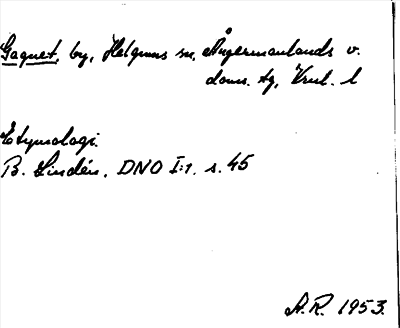 Gaquet, by, Helgums sn, Ångermanlands v.
doms. tg, Vnl. l
Etymologi.
B. Lindén, DNO I:1. s. 45
A.R. 1953.